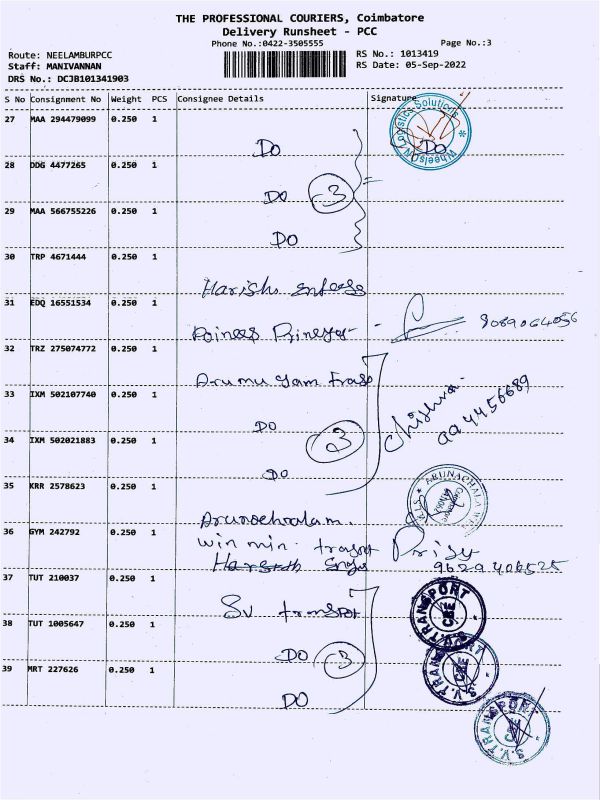 THE PROFESSIONAL COURIERS, Coimbatore
Delivery Runsheet - PCC
Phone No.:0422-3505555
Page No.:3
Route: NEELAMBURPCC
RS No.: 1013419
Staff: MANIVANNAN
RS Date: 05-Sep-2022
DRS No.: DCJB101341903
S No Consignment No Weight PCS Consignee Details Signature
27 MAA 294479099 0.250 1
WheelsON Logistics Solutions
Do
Do
28 DDG 4477265 0.250 1
Do 3
29 MAA 566755226 0.250 1
Do
30 TRP 4671444 0.250 1
Harish
31 EDQ 16551534 0.250 1
8089064056
32 TRZ 275074772 0.250 1
33 IXM 502107740 0.250 1
Do 3
34 IXM 502021883 0.250 1
Do
35 KRR 2578623 0.250 1
ARUNACHALA
Arunachalam.
36 GYM 242792 0.250 1
win min.
9629406525
37 TUT 210037 0.250 1
Sv transpot
S.V. TRANSPORT
CBE
38 TUT 1005647 0.250 1
Do 3
S.V. TRANSPORT
CBE
39 MRT 227626 0.250 1
Do
S.V. TRANSPORT
CBE